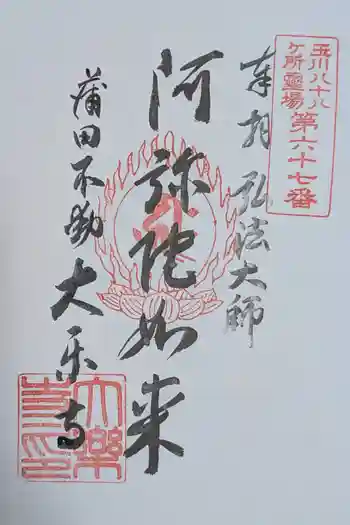 玉川八十八
ケ所霊場第六十七番
奉拝 弘法大師
阿弥陀如来
蒲田不動 大楽寺
大樂
寺之印